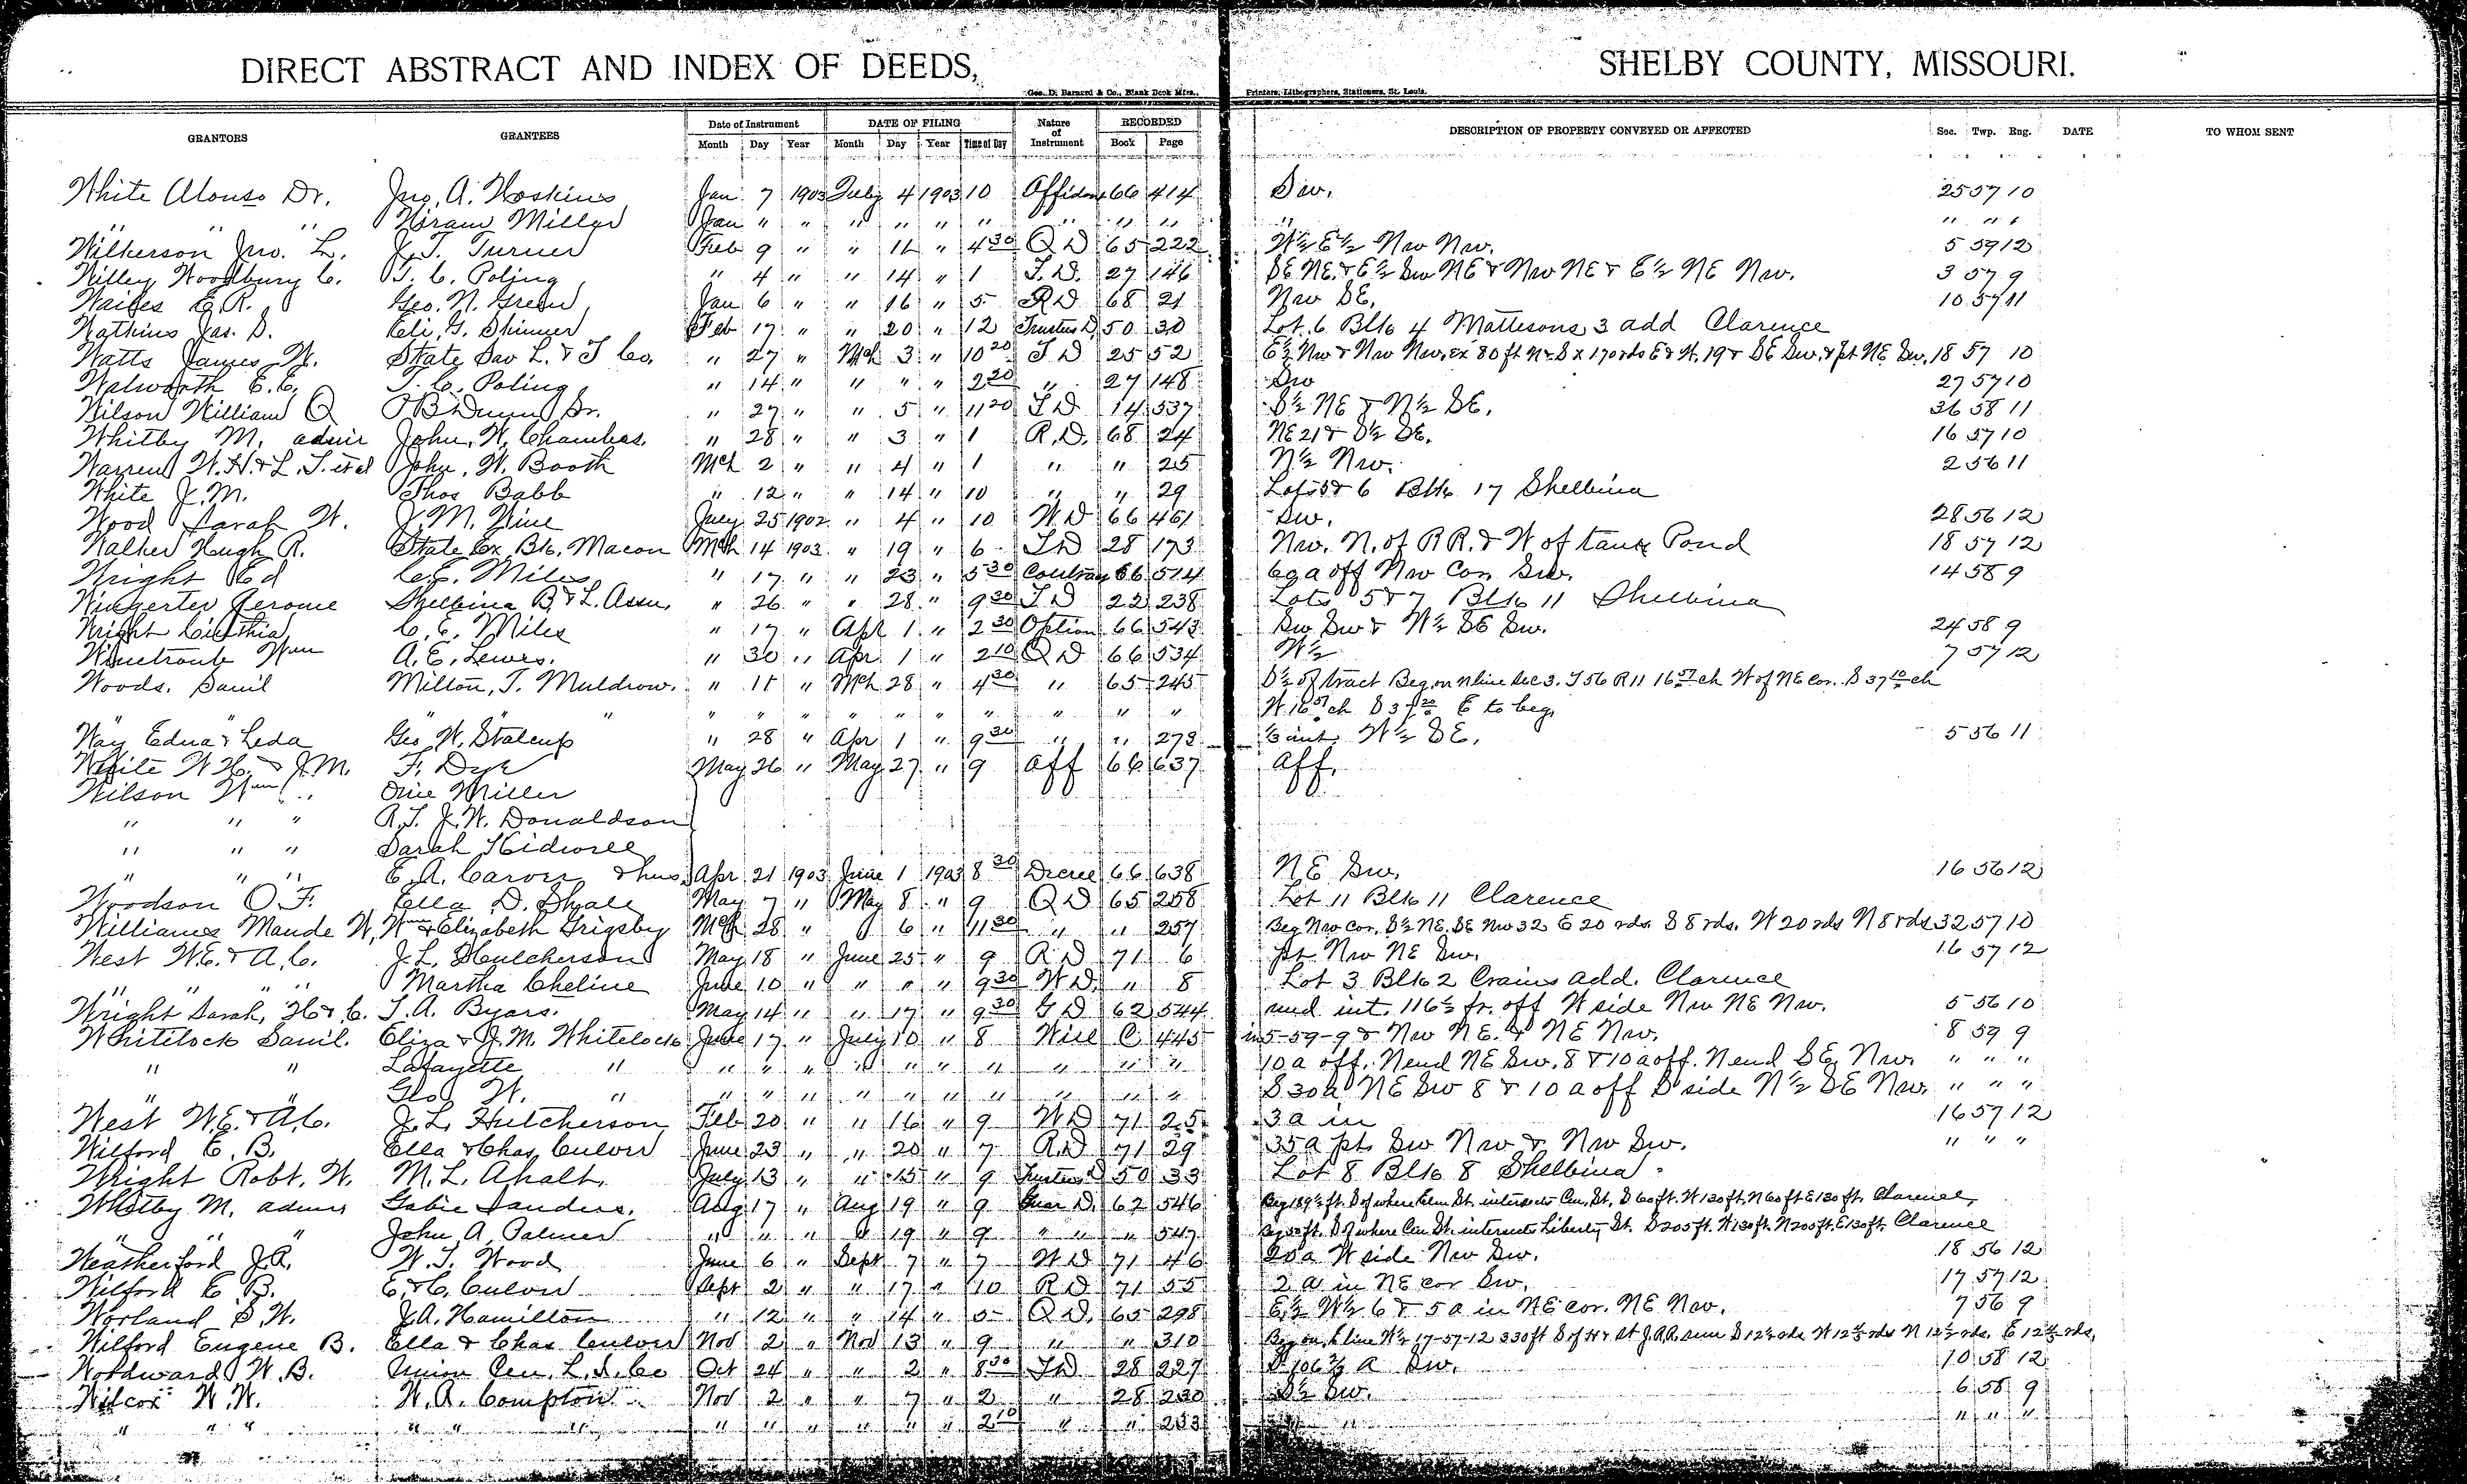 DIRECT ABSTRACT AND INDEX OF DEEDS, SHELBY COUNTY, MISSOURI.
Geo. D. Barnard & Co., Blank Book Mfrs., Printers, Lithographers, Stationers, St. Louis.
GRANTORS GRANTEES Date of Instrument DATE OF FILING Nature of Instrument RECORDED DESCRIPTION OF PROPERTY CONVEYED OR AFFECTED Sec. Twp. Rng. DATE TO WHOM SENT
Month Day Year Month Day Year Time of Day Book Page
White Alonso Dr. Jno. A. Hoskins Jan 7 1903 Feby 4 1903 10 66 414 Sw. 25 57 10
" " " Hiram Miller Jan " " " " " " " " " " " " "
Wilkerson Jno. L. J. T. Turner Feb 9 " " 11 " 4 30 Q D 65 222 W½ E½ Nw Nw. 5 59 12
Willey Woodbury C. T. C. Poling " 4 " " 14 " 1 T. D. 27 146 SE NE & E½ Sw NE & Nw NE & E½ NE Nw. 3 57 9
E. R. Geo. N. Green Jan 6 " " 16 " 5 R D 68 21 Nw SE. 10 57 11
Watkins Jas. S. Eli. G. Skinner Feb 17 " " 20 " 12 Trustees D 50 30 Lot 6 Blk 4 Mattesons 3 add Clarence
Watts James W. State Sav L. & T Co. " 27 " Mch 3 " 10 20 T D 25 52 E½ Nw & Nw Nw. ex 80 ft N & S x 170 rds E & W. 19 & SE Sw. & pt NE Sw. 18 57 10
Walworth E. C. T. C. Poling " 14 " " " " 2 20 " 27 148 Sw 27 57 10
Wilson William Q B Dunn Sr. " 27 " " 5 " 11 20 T D 14 537 S½ NE & N½ SE. 36 58 11
Whitby M. admr John. W. Chambers. " 28 " " 3 " 1 R. D. 68 24 NE 21 & S½ SE. 16 57 10
Warren W. H. & L. T. et al John. W. Booth Mch 2 " " 4 " 1 " " 25 N½ Nw. 2 56 11
White J. M. Thos Babb " 12 " " 14 " 10 " " 29 Lots 5 & 6 Blk 17 Shelbina
Wood Sarah W. J. M. July 25 1902 " 4 " 10 W D 66 461 Sw. 28 56 12
Walker Hugh R. State Ex. Bk. Macon Mch 14 1903 " 19 " 6 T D 28 173 Nw. N. of RR. & W of tank Pond 18 57 12
Wright Ed C. E. Miles " 17 " " 23 " 5 30 Contract 66 514 69 a off Nw Cor Sw. 14 58 9
Wingerter Jerome Shelbina B. & L. Assn. " 26 " " 28 " 9 30 T D 22 238 Lots 5 & 7 Blk 11 Shelbina
Wright Cinthia C. E. Miles " 17 " Apr 1 " 2 30 Option 66 543 Sw Sw & W½ SE Sw. 24 58 9
Winetroub Wm A. E. Lewis. " 30 " Apr 1 " 2 10 Q D 66 534 W½ 7 57 12
Woods. Saml Milton. T. Muldrow. " 11 " Mch 28 " 4 30 " 65 245 S½ of tract Beg. on N line Sec 3. T 56 R 11 16 51 ch W of NE cor. S 37 10 ch
" " " " " " " " " " " W 16 51 ch S 37 20 E to beg,
Way Edna & Leda Geo W. Stalcup " 28 " Apr 1 " 9 30 " " 273 ⅓ int. W½ SE. 5 56 11
White W H. & J. M. F. Dye May 26 " May 27 " 9 aff 66 637 aff.
Wilson Wm Miller
" " " R. T. J. W. Donaldson
" " " Sarah Kidwell
" " " E. A. Carver & hus. Apr 21 1903 June 1 1903 8 30 Decree 66 638 NE Sw. 16 56 12
Woodson O. F. Ella D. May 7 " May 8 " 9 Q D 65 258 Lot 11 Blk 11 Clarence
Williams Maude W. Wm & Elizabeth Grigsby Mch 28 " " 6 " 11 30 " " 257 Beg Nw cor. S½ NE. SE Nw 32 E 20 rds. S 8 rds. W 20 rds N 8 rds 32 57 10
West W. E. & A. C. J. L. Hulcherson May 18 " June 25 " 9 R D 71 6 pt Nw NE Sw. 16 57 12
" " " " Martha Cheline June 10 " " " " 9 30 W D. " 8 Lot 3 Blk 2 Crains add. Clarence
Wright Sarah, H & C. T. A. Byars. May 14 " " 17 " 9 30 G D 62 544 und int. 116½ fr. off W side Nw NE Nw. 5 56 10
Whitelock Saml. Eliza & J. M. Whitelock June 17 " July 10 " 8 Will C 445 in 5-59-9 & Nw NE. & NE Nw. 8 59 9
" " Lafayette " " " " " " " " " " " 10 a off. N end NE Sw. 8 & 10 a off. N end SE Nw. " " "
" " Geo W. " " " " " " " " " " " S 30 a NE Sw 8 & 10 a off S side N½ SE Nw. " " "
West W. E. & A. C. J. L. Hutcherson Feb 20 " " 16 " 9 W D 71 25 3 a in 16 57 12
Wilford E. B. Ella & Chas Culver June 23 " " 20 " 7 R. D 71 29 35 a pt Sw Nw & Nw Sw. " " "
Wright Robt. W. M. L. Ahalt. July 13 " " 15 " 9 Trustees D 50 33 Lot 8 Blk 8 Shelbina
Whitby M. admr Gabie Sanders. Aug 17 " Aug 19 " 9 Guar D. 62 546 Beg 189½ ft. S of where Elm St. intersects Cen. St. S 60 ft. W 130 ft. N 60 ft E 130 ft. Clarence
" " " John A. Palmer " " " " 19 " 9 " " " 547 Beg 50 ft. S of where Cen St. intersects Liberty St. S 205 ft. W 130 ft. N 200 ft. E 130 ft. Clarence
Weatherford J. A. W. T. Wood June 6 " Sept 7 " 7 W D 71 46 20 a W side Nw Sw. 18 56 12
Wilford E B. E. & C. Culver Sept 2 " " 17 " 10 R D 71 55 2 a in NE cor Sw. 17 57 12
Worland S. W. J. A. Hamilton " 12 " " 14 " 5 Q D. 65 298 E½ W½ 6 & 5 a in NE cor. NE Nw. 7 56 9
Wilford Eugene B. Ella & Chas Culver Nov 2 " Nov 13 " 9 " " 310 Beg on E line W½ 17-57-12 330 ft S of H & St J. R.R. run S 12½ rds W 12½ rds N 12½ rds. E 12½ rds.
Woldward W. B. Union Cen. L. I. Co Oct 24 " " 2 " 8 30 T D 28 227 S 106⅔ a Sw. 10 58 12
Wilcox W. W. W. A. Compton Nov 2 " " 7 " 2 " 28 230 S½ Sw. 6 58 9
" " " " " " " " " " " " 2 10 " " 233 " " " " "